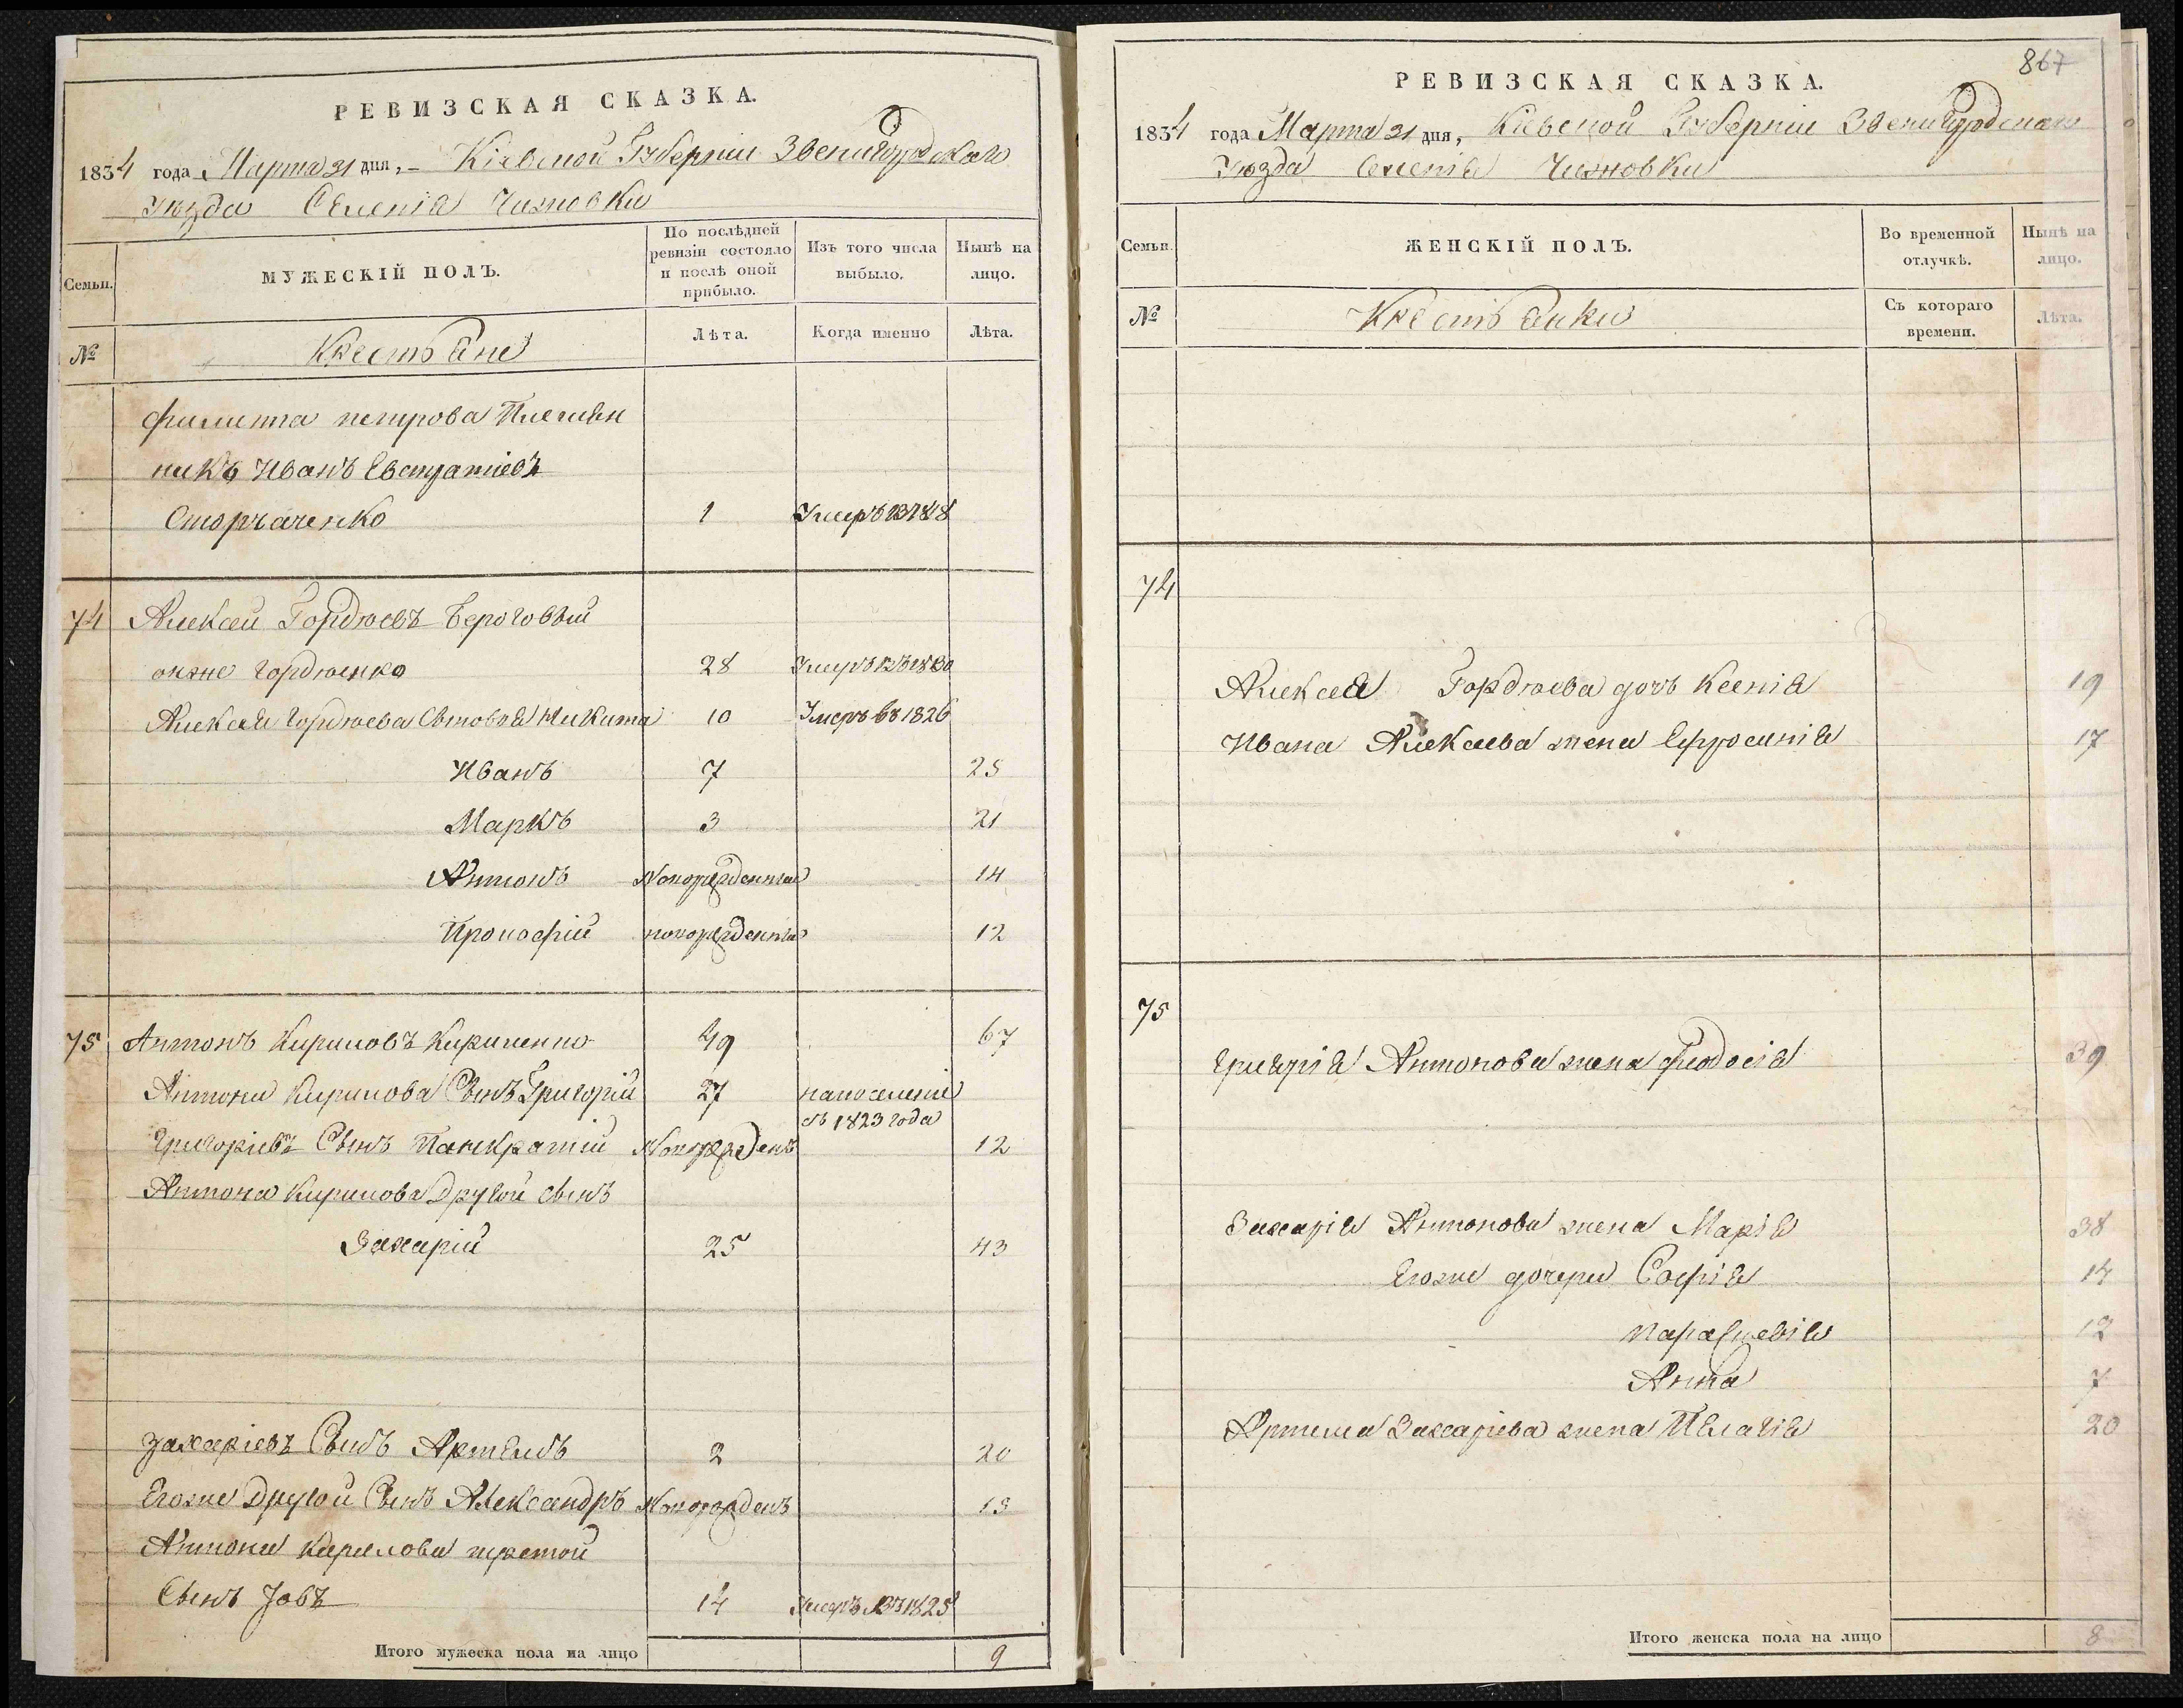 РЕВИЗСКАЯ СКАЗКА.
1834 года Марта 31 дня, Кіевской Губерніи Звенигородскаго
Уѣзда Селенія Чижовки
Семьи.
МУЖЕСКІЙ ПОЛЪ.
По послѣдней ревизіи состояло и послѣ оной прибыло.
Изъ того числа выбыло.
Нынѣ на лицо.
№
Крестьяне
Лѣта.
Когда именно
Лѣта.
Филиппа петрова Племян
никъ Иванъ Евстратіевъ
Сторчаченко 1 Умеръ в 1818
74 Алексей Гордѣевъ Береговый
онже Гордѣенко 28 Умеръ въ 1830
Алексея Гордѣева Сыновья Никита 10 Умеръ въ 1826
Иванъ 7 25
Маркъ 3 21
Антонъ Новорожденныи 14
Прокофій новорожденныи 12
75 Антонъ Кириловъ Кириленко 49 67
Антона Кирилова Сынъ Григорій 27 на поселеніе
съ 1823 года
Григоріевъ Сынъ Панкратій Новорожденъ 12
Антона Кирилова Другой сынъ
Захарій 25 43
Захаріевъ Сынъ Артемъ 2 20
Егоже Другой Сынъ Александръ Новорожденъ 13
Антона Кирилова третой
Сынъ Іовъ 14 Умеръ Въ 1825
Итого мужеска пола на лицо 9
867
РЕВИЗСКАЯ СКАЗКА.
1834 года Марта 31 дня, Кіевской Губерніи Звенигородскаго
Уѣзда Селенія Чижовки
Семьи.
ЖЕНСКІЙ ПОЛЪ.
Во временной отлучкѣ.
Нынѣ на лицо.
№
Крестьянки
Съ котораго времени.
Лѣта.
74
Алексея Гордѣева дочь Ксенія 19
Ивана Алексеева жена Ефросинія 17
75
Григорія Антонова жена Феодосія 39
Захарія Антонова жена Марія 38
Егоже дочери Софія 14
Параскевія 12
Анна 7
Артема Захаріева жена Пелагія 20
Итого женска пола на лицо 8